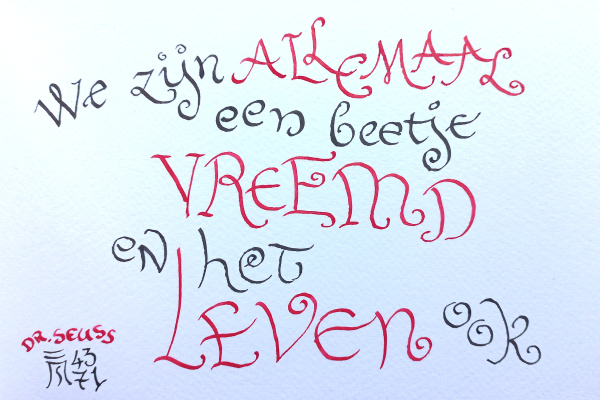 We zijn ALLEMAAL
een beetje
VREEMD
en het
LEVEN OOK
DR. SEUSS
43
71